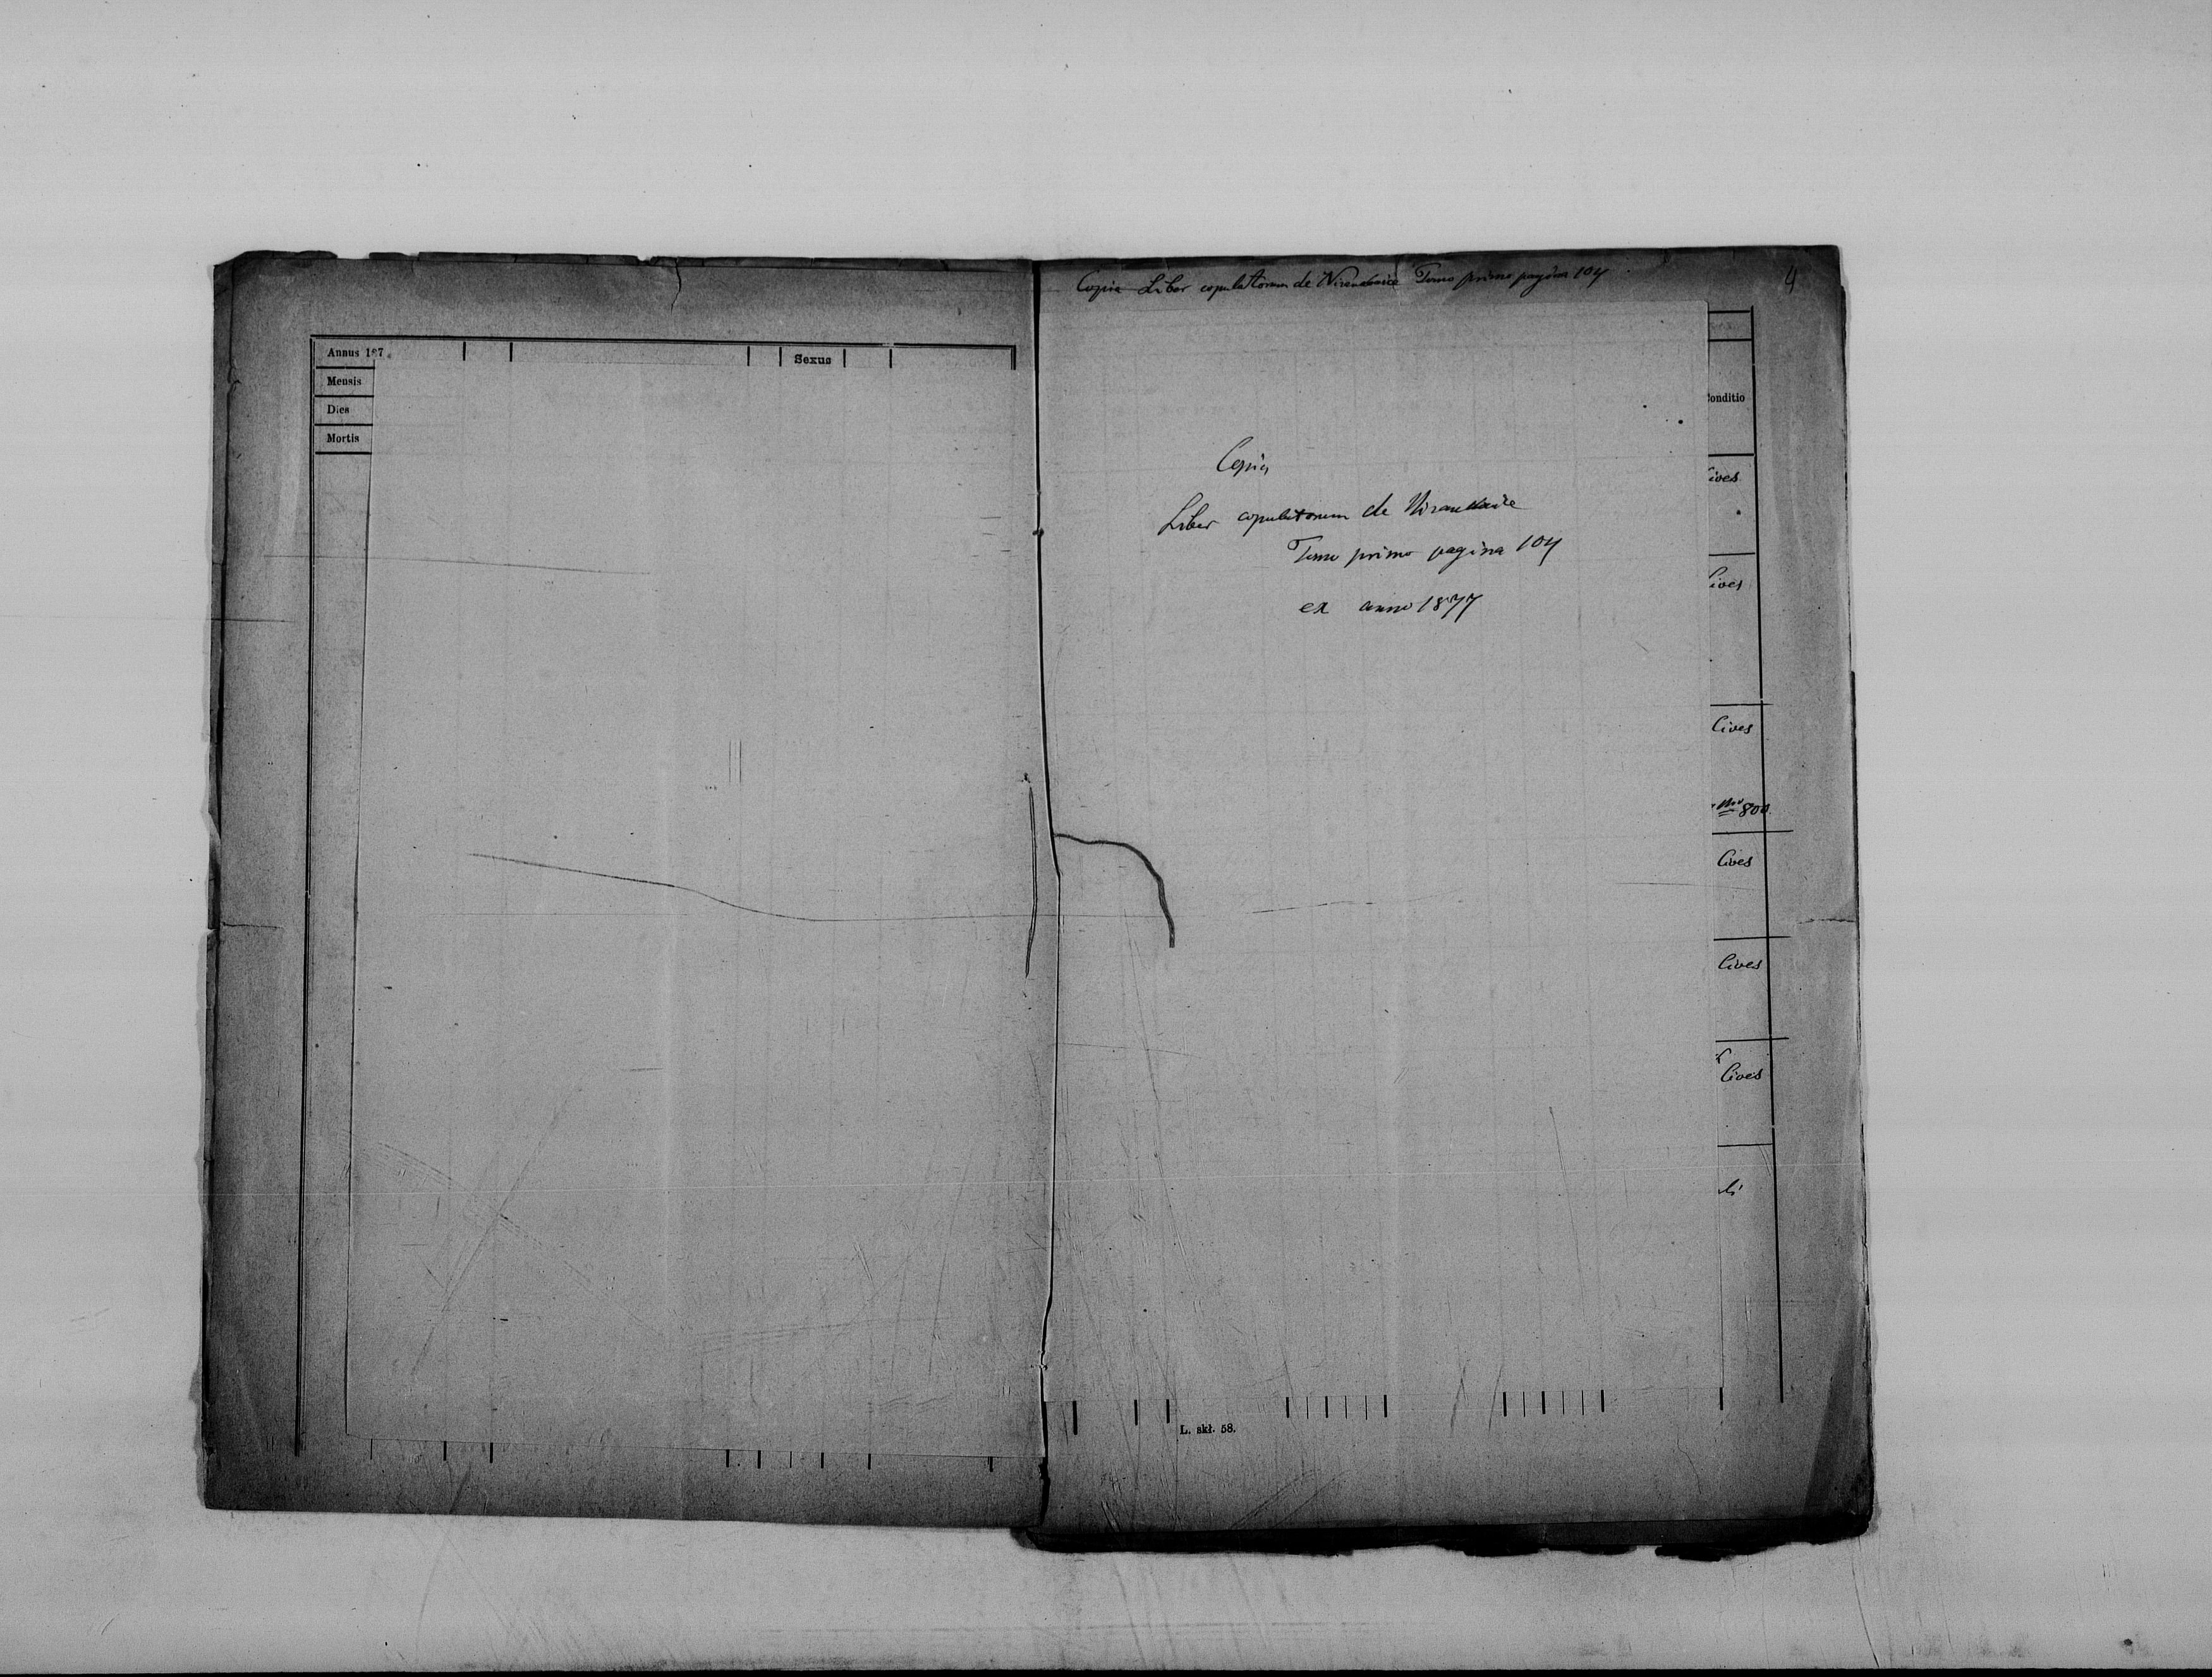 Copia Liber copulatorum de Tomo primo pagina 104
4
Annus 187
Sexus
Mensis
Dies
Mortis
Conditio
Copia
Liber copulatorum de
Tomo primo pagina 104
ex anno 1877
Cives
Cives
Cives
800
Cives
Cives
Cives
L. skł. 58.